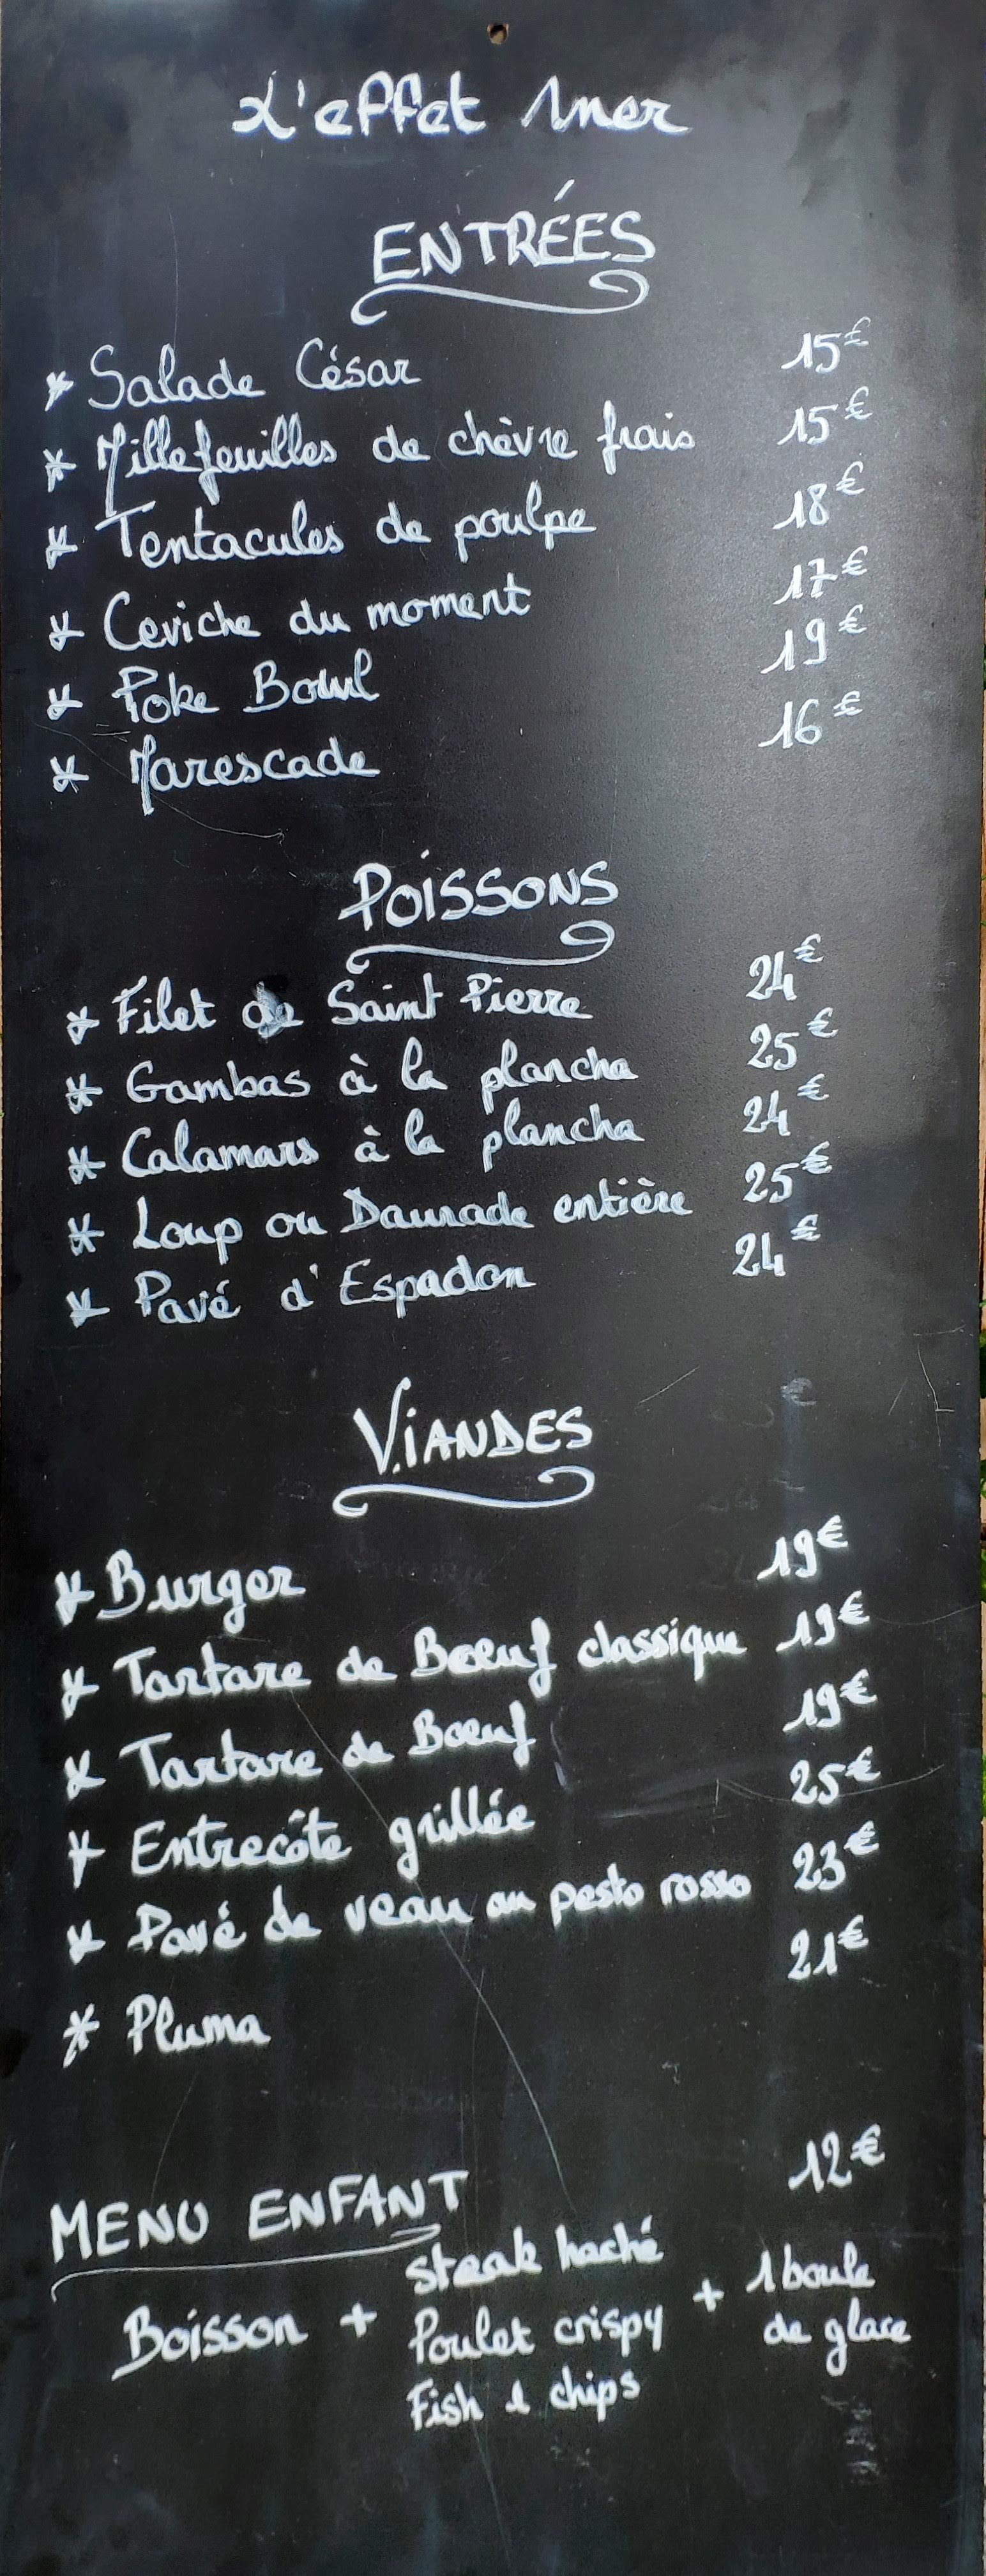 L'effet mer
ENTRÉES
* Salade César 15€
* Millefeuilles de chèvre frais 15€
* Tentacules de poulpe 18€
* Ceviche du moment 17€
* Poke Bowl 19€
* Marescade 16€
POISSONS
* Filet de Saint Pierre 24€
* Gambas à la plancha 25€
* Calamars à la plancha 24€
* Loup ou Daurade entière 25€
* Pavé d'Espadon 24€
VIANDES
* Burger 19€
* Tartare de Boeuf classique 19€
* Tartare de Boeuf 19€
* Entrecôte grillée 25€
* Pavé de veau au pesto rosso 23€
* Pluma 21€
MENU ENFANT 12€
Steak haché
Boisson + Poulet crispy + 1 boule
Fish & chips de glace